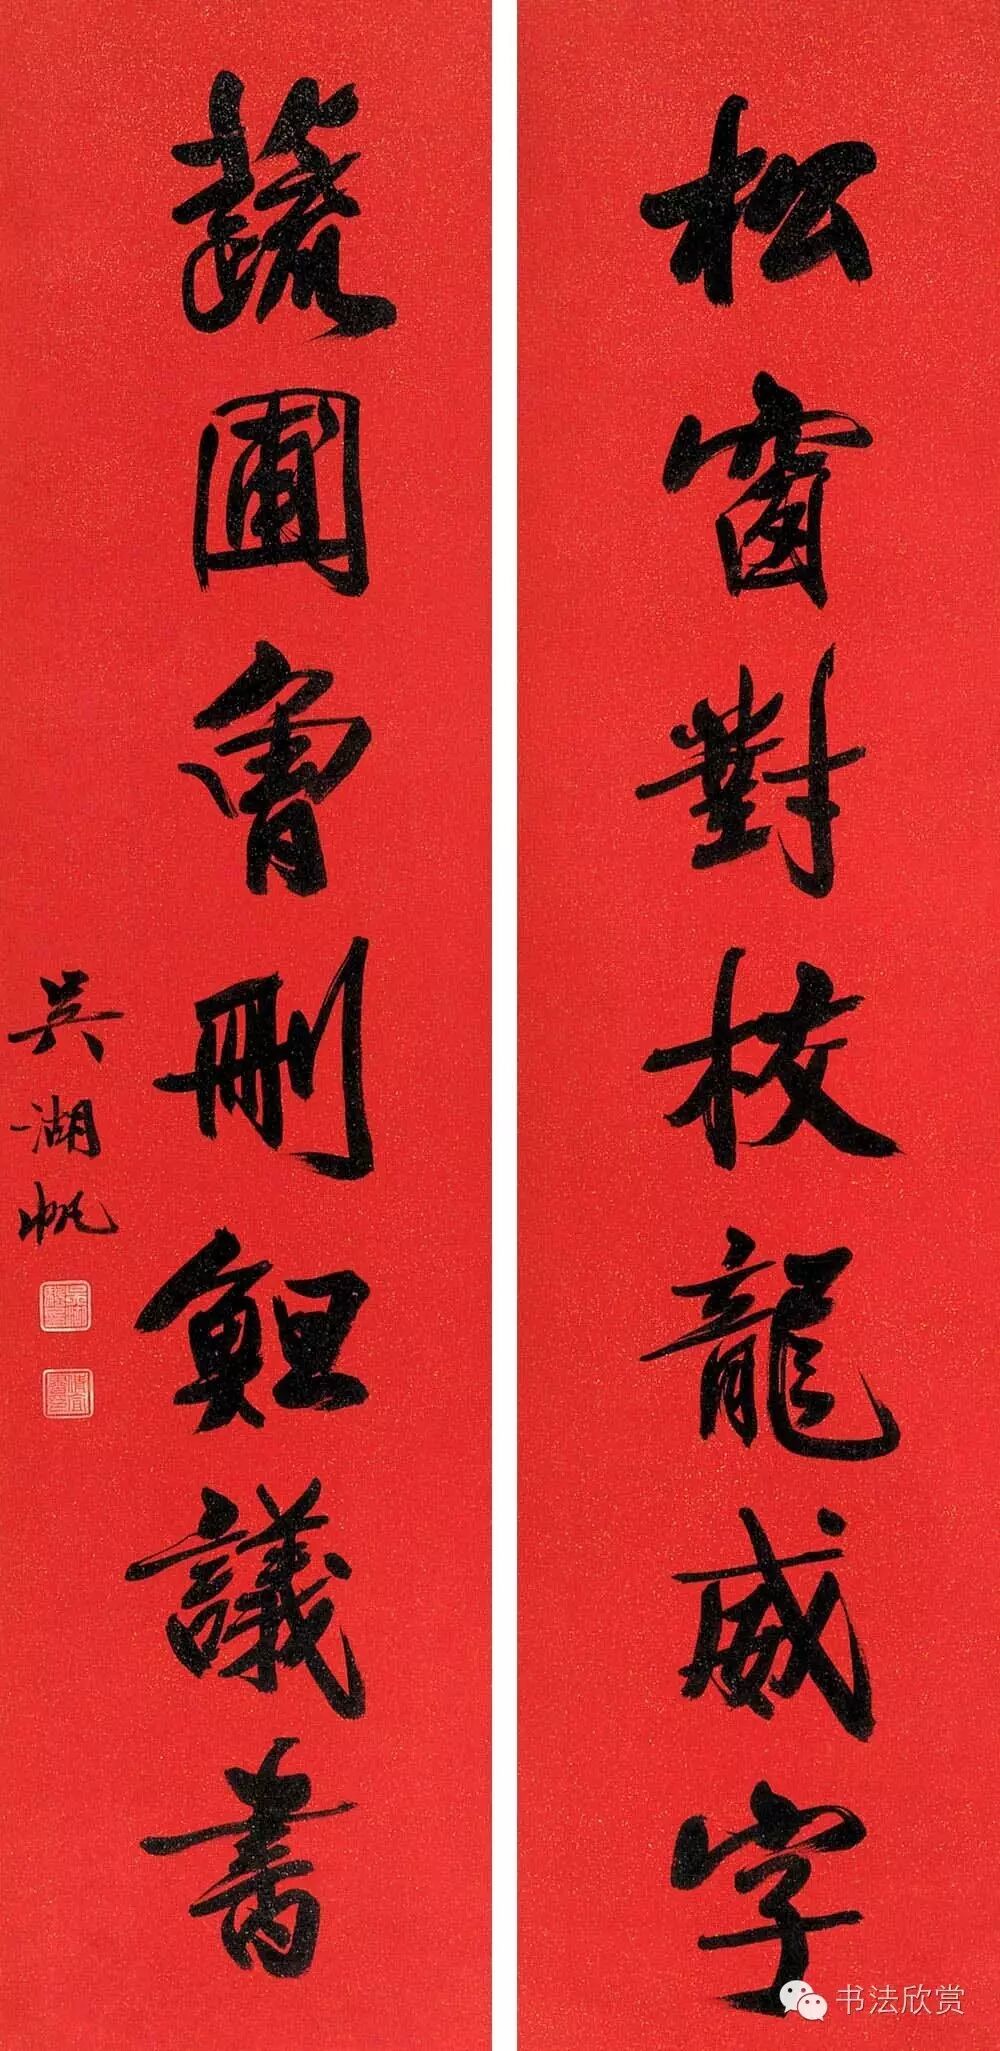 松窗對校龍威字
蔬圃曾刪議書
吳湖帆
书法欣赏